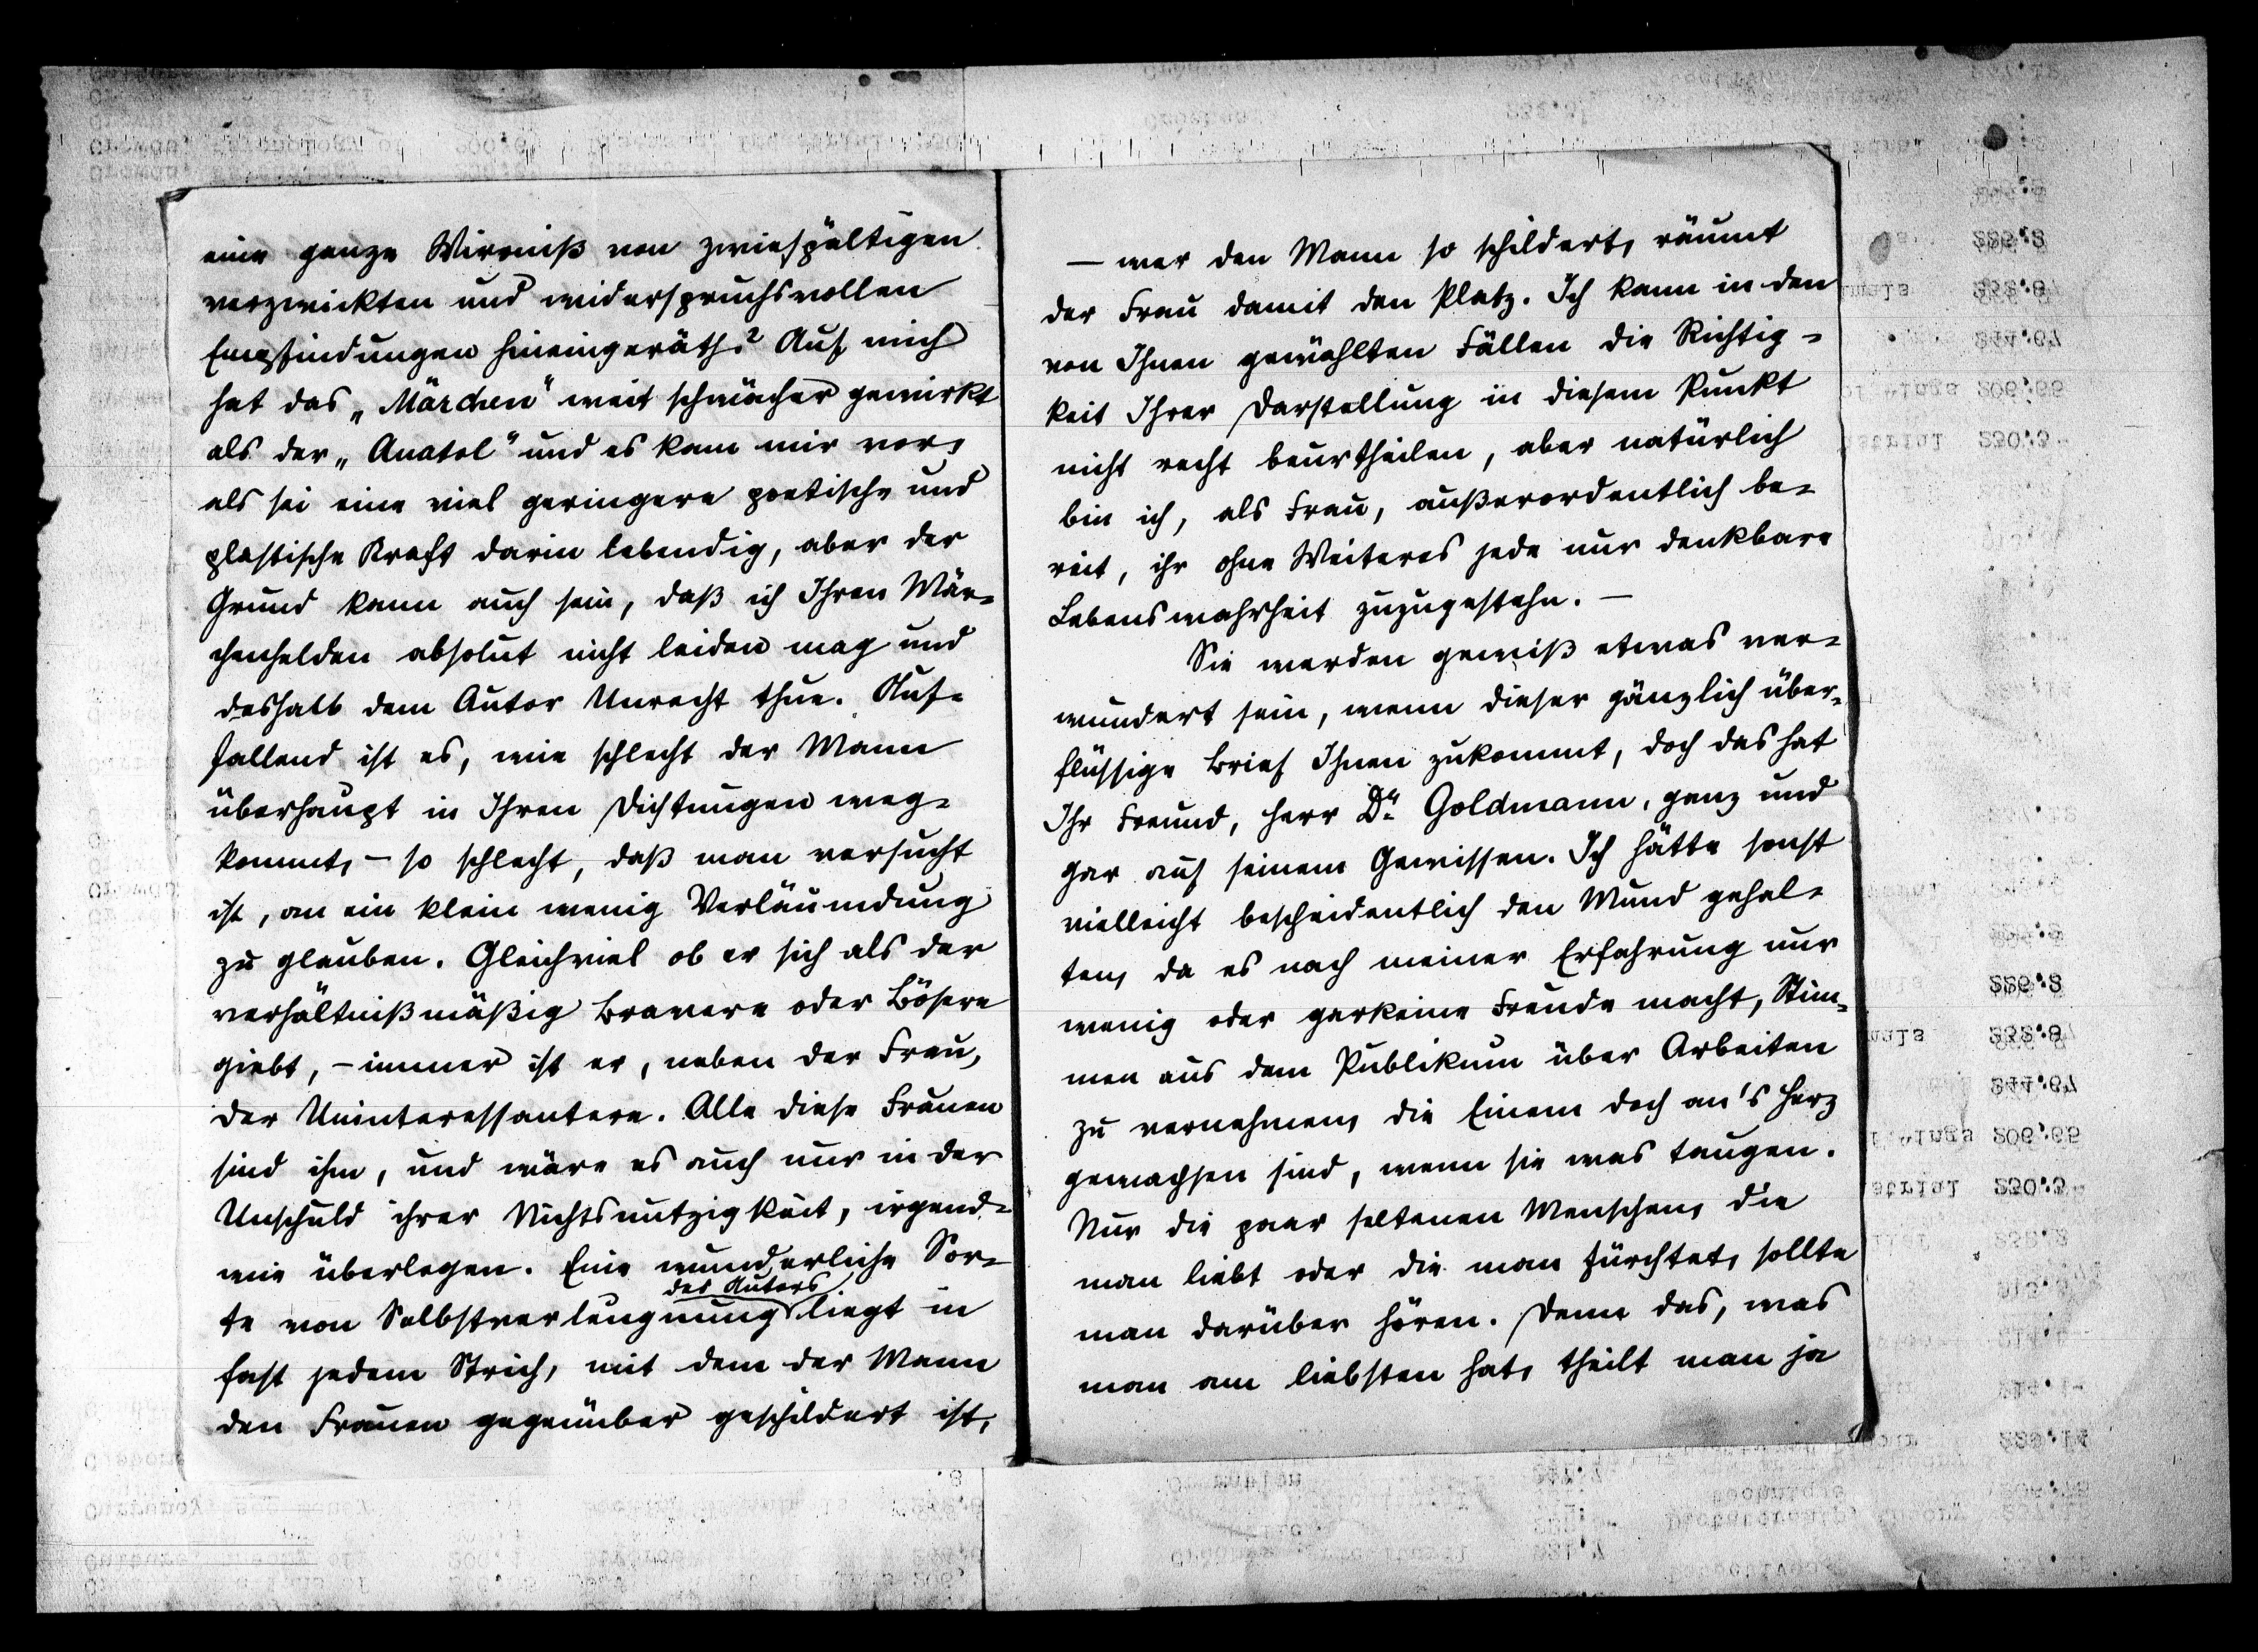 eine ganze Wirrniß von zwiespältigen
verzwickten und widerspruchsvollen
Empfindungen hineingeräth? Auf mich
hat das „Märchen“ weit schwächer gewirkt
als der „Anatol“ und es kam mir vor,
als sei eine viel geringere poetische und
plastische Kraft darin lebendig, aber der
Grund kann auch sein, daß ich Ihren Mär-
chenhelden absolut nicht leiden mag und
deshalb dem Autor Unrecht thue. Auf-
fallend ist es, wie schlecht der Mann
überhaupt in Ihren Dichtungen weg-
kommt, – so schlecht, daß man versucht
ist, an ein klein wenig Verläumdung
zu glauben. Gleichviel ob er sich als der
verhältnißmäßig Bravere oder Bösere
giebt, – immer ist er, neben der Frau,
der Uninteressantere. Alle diese Frauen
sind ihm, und wäre es auch nur in der
Unschuld ihrer Nichtsnutzigkeit, irgend-
wie überlegen. Eine wunderliche Sor-
te von Selbstverleugnung des Autors liegt in
fast jedem Strich, mit dem der Mann
den Frauen gegenüber geschildert ist,
– wer den Mann so schildert, räumt
der Frau damit den Platz. Ich kann in den
von Ihnen gewählten Fällen die Richtig-
keit Ihrer Darstellung in diesem Punkt
nicht recht beurtheilen, aber natürlich
bin ich, als Frau, außerordentlich be-
reit, ihr ohne Weiteres jede nur denkbare
Lebenswahrheit zuzugestehn. –
Sie werden gewiß etwas ver-
wundert sein, wenn dieser gänzlich über-
flüssige Brief Ihnen zukommt, doch das hat
Ihr Freund, Herr Dr. Goldmann, ganz und
gar auf seinem Gewissen. Ich hätte sonst
vielleicht bescheidentlich den Mund gehal-
ten, da es nach meiner Erfahrung nur
wenig oder garkeine Freude macht, Stim-
men aus dem Publikum über Arbeiten
zu vernehmen, die Einem doch an's Herz
gewachsen sind, wenn sie was taugen.
Nur die paar seltenen Menschen, die
man liebt oder die man fürchtet, sollte
man darüber hören. Denn das, was
man am liebsten hat, theilt man ja